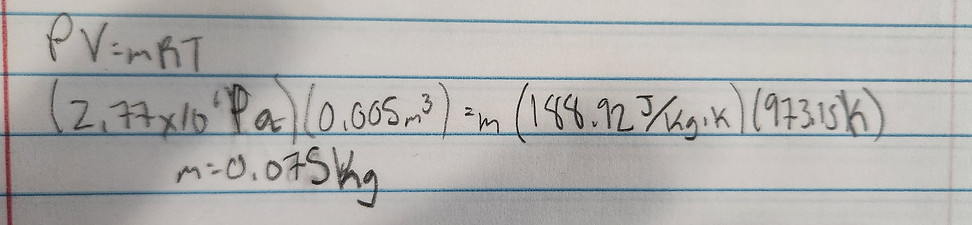 PV=mRT
(2.77x10⁶Pa)(0.005m³)=m(188.92J/kg.K)(973.15K)
m=0.075kg